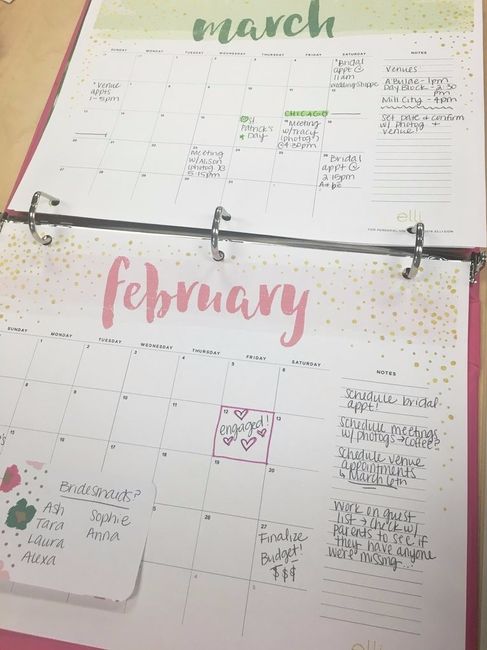 march
SUNDAY MONDAY TUESDAY WEDNESDAY THURSDAY FRIDAY SATURDAY NOTES
*Bridal
appt @
11am
wedding shoppe
*Venue
appts
1-5pm
Venues
A Bulae - 1pm
Day Block - 2:30
pm
Mill City - 4pm
Set Date + confirm
w/ photog +
venue!
St
Patrick's
Day
CHICAGO
*Meeting
w/ Tracy
(photog)
@ 4:30pm
Meeting
w/ Alison
(photog X3)
5:15pm
*Bridal
appt @
2:15pm
elli
february
SUNDAY MONDAY TUESDAY WEDNESDAY THURSDAY FRIDAY SATURDAY
NOTES
1 2 3 4 5 6
8 9 10 11 12 13
engaged!
19 20
27
Finalize
Budget!
$$$
schedule bridal
appt!
schedule meetings
w/ photogs → coffee?
schedule venue
appointments
↳ March 6th
Work on guest
list → check w/
parents to see if
they have anyone
were missing...
Bridesmaids?
Ash
Tara
Laura
Alexa
Sophie
Anna
elli